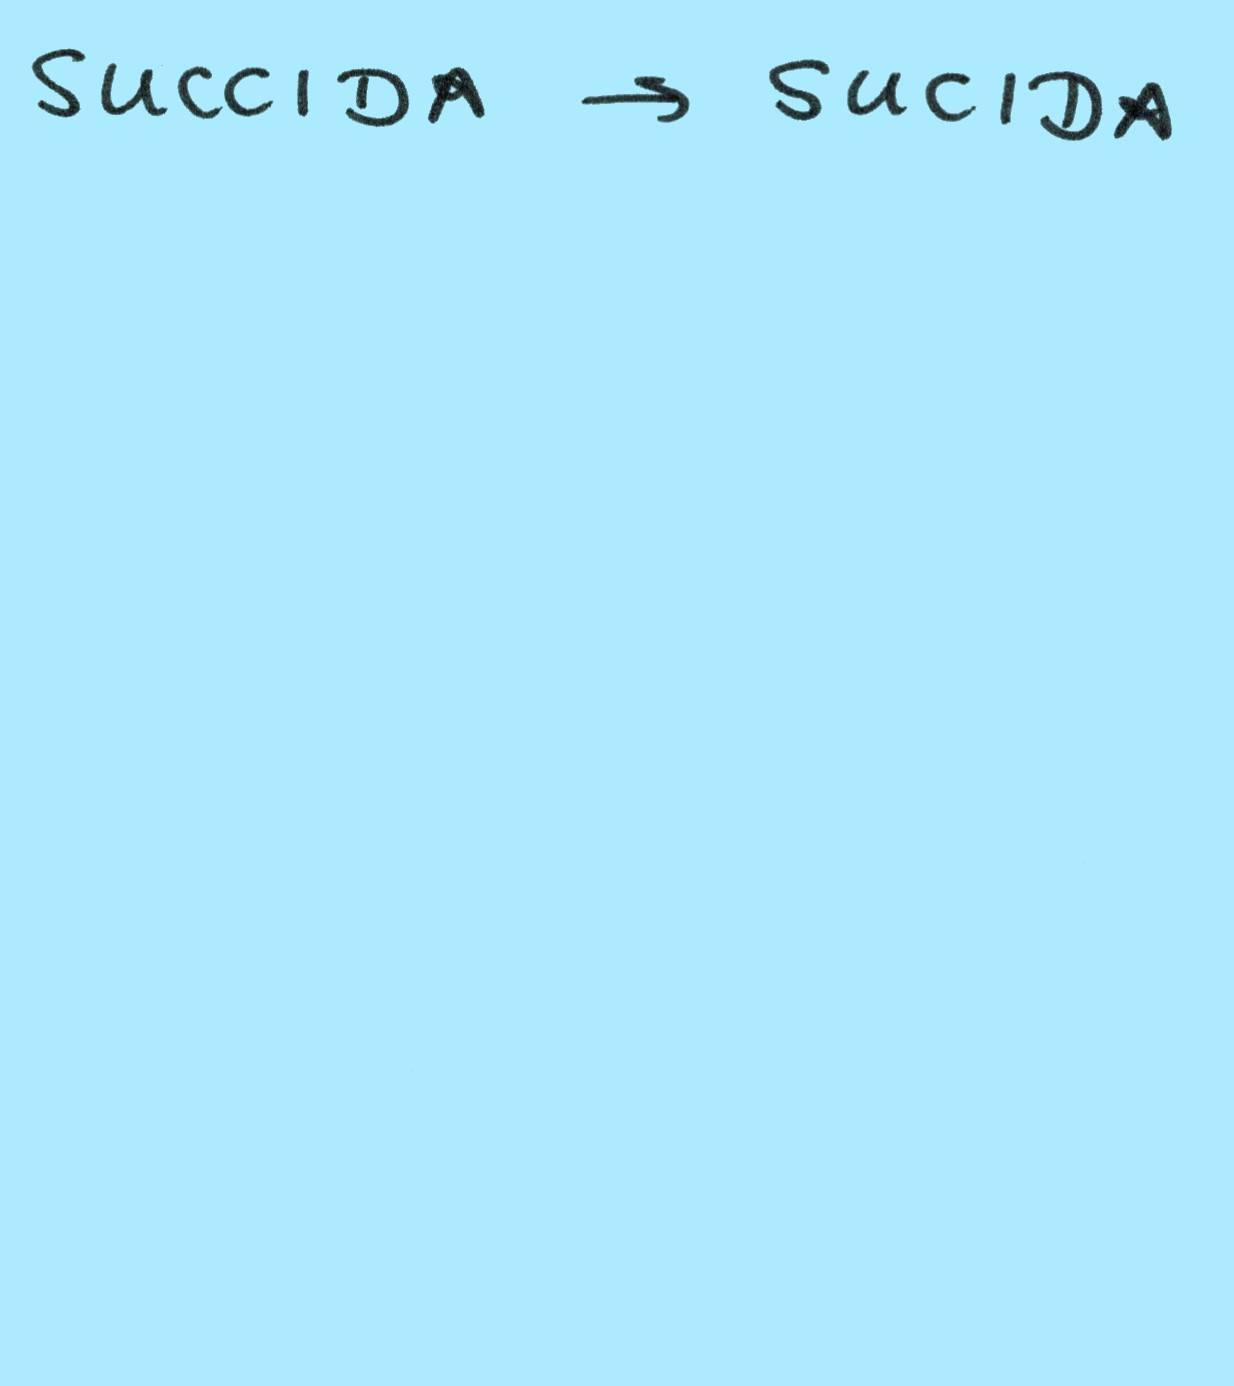 SUCCIDA → SUCIDA